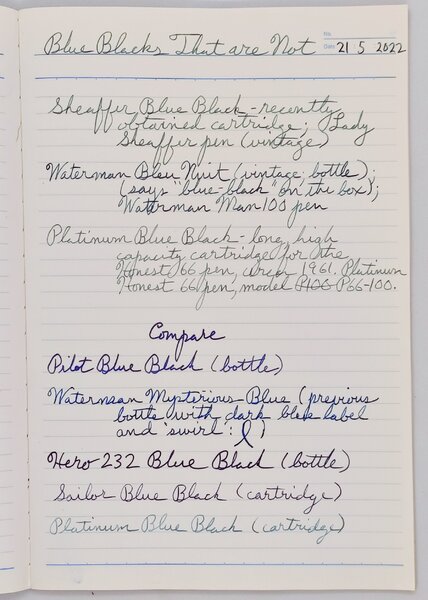 Blue Blacks That are Not
No.
Date 21 5 2022
Sheaffer Blue Black - recently
obtained cartridge; Lady
Sheaffer pen (vintage)
Waterman Bleu Nuit (vintage; bottle);
(says "blue-black" on the box);
Waterman Man 100 pen
Platinum Blue Black - long, high
capacity cartridge for the
Honest 66 pen, circa 1961. Platinum
Honest 66 pen, model P100 P66-100.
Compare
Pilot Blue Black (bottle)
Waterman Mysterious Blue (previous
bottle with dark blue label
and 'swirl':)
Hero 232 Blue Black (bottle)
Sailor Blue Black (cartridge)
Platinum Blue Black (cartridge)